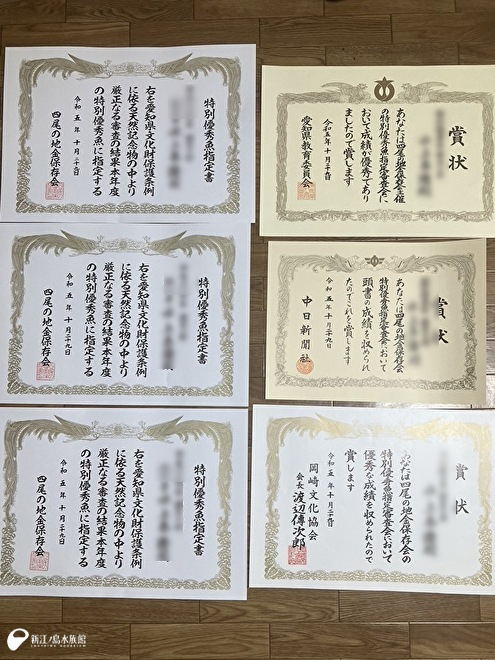 特別優秀魚指定書
右を愛知県文化財保護条例
に依る天然記念物の中より
厳正なる審査の結果本年度
の特別優秀魚に指定する
令和五年十月二十九日
四尾の地金保存会
特別優秀魚指定書
右を愛知県文化財保護条例
に依る天然記念物の中より
厳正なる審査の結果本年度
の特別優秀魚に指定する
令和五年十月二十九日
四尾の地金保存会
特別優秀魚指定書
右を愛知県文化財保護条例
に依る天然記念物の中より
厳正なる審査の結果本年度
の特別優秀魚に指定する
令和五年十月二十九日
四尾の地金保存会
賞状
あなたは四尾の地金保存会
の特別優秀魚指定審査会に
おいて成績が優秀であり
ましたので賞します
令和五年十月二十九日
愛知県教育委員会
賞状
あなたは四尾の地金保存会
特別優秀魚指定審査会において
頭書の成績を収められ
たのでこれを賞します
令和五年十月二十九日
中日新聞社
賞状
あなたは四尾の地金保存会の
特別優秀魚指定審査会において
優秀な成績を収められたので
賞します
令和五年十月二十九日
岡崎文化協会
会長 渡辺傳次郎
新江ノ島水族館
ENOSHIMA AQUARIUM